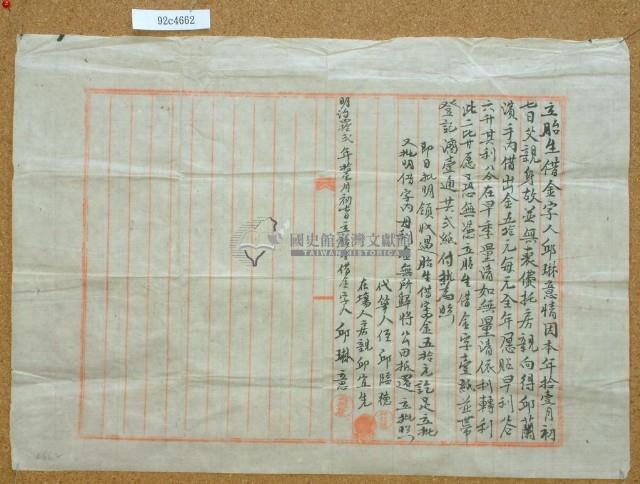 92c4662
立胎生借金字人邱琳意情因本年拾壹月初
七日父親身故並無衣儀托房親向得邱蘭
濱手內借出金五拾元每元全年愿貼早利谷
六升其利谷在早季量清如無量清依利轉利
此二比甘愿恐無憑立胎生借金字壹紙並帶
登記濟壹通共弍紙付執為照
即日批明領收過胎生借字金五拾元訖足立批
又批明借字內母利無所歸將公田抵還立批照
代筆人侄邱
在場人房親邱宜先
明治 年拾 月初 日立胎 借金字人邱琳意
國史館臺灣文獻館
TAIWAN HISTORICA